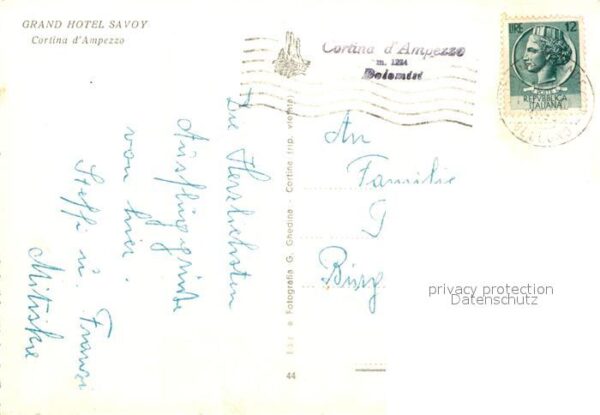 GRAND HOTEL SAVOY
Cortina d'Ampezzo
Cortina d'Ampezzo
m. 1224
Dolomiti
LIRE 12
REPVBBLICA
ITALIANA
Die Herzlichsten
Ausflugsgrüße
von hier.
Steffi u. Franzi
An
Familie
P
Bürg
privacy protection
Datenschutz
Ediz. e Fotografia G. Ghedina - Cortina (rip. vietata)
44